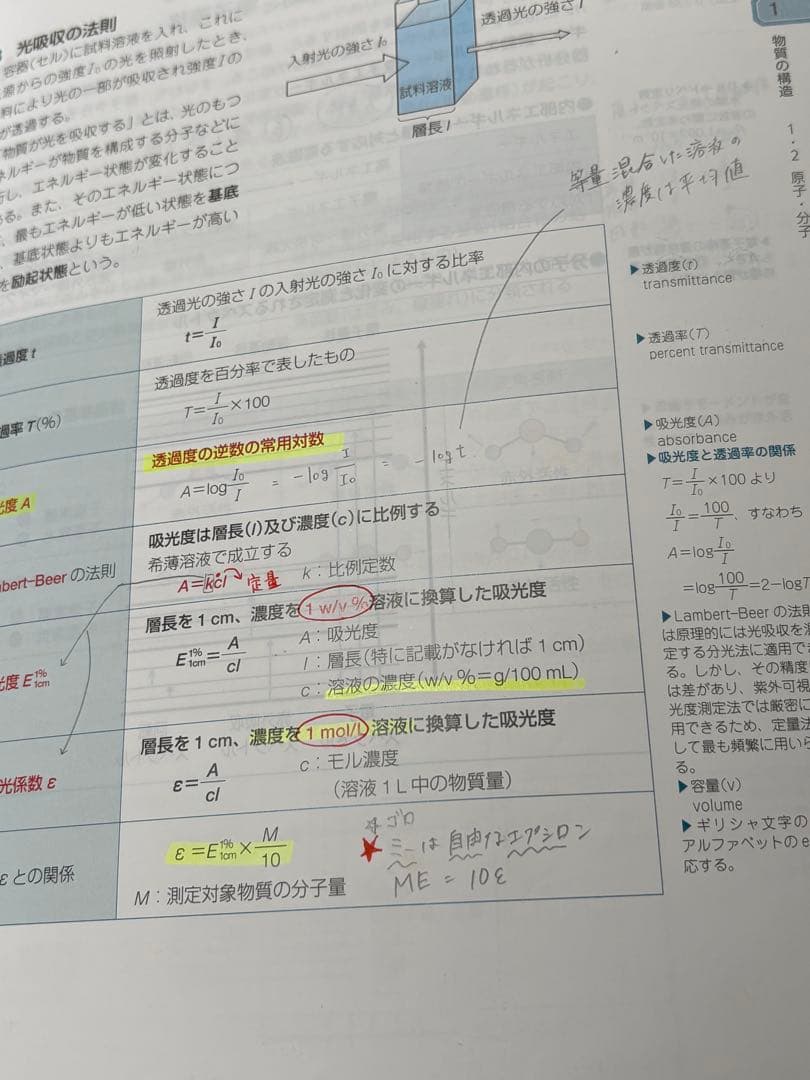 光吸収の法則
容器(セル)に試料溶液を入れ、これに
源からの強度I₀の光を照射したとき、
料により光の一部が吸収され強度Iの
が透過する。
物質が光を吸収する」とは、光のもつ
ネルギーが物質を構成する分子などに
し、エネルギー状態が変化すること
る。また、そのエネルギー状態につ
、最もエネルギーが低い状態を基底
、基底状態よりもエネルギーが高い
を励起状態という。
入射光の強さ I₀
透過光の強さ I
試料溶液
層長 l
等量混合した溶液の
濃度は平均値
過度 t
透過光の強さ I の入射光の強さ I₀ に対する比率
t=I/I₀
過率 T(%)
透過度を百分率で表したもの
T=I/I₀×100
光度 A
透過度の逆数の常用対数
A=log I₀/I = -log I/I₀ = -log t
mbert-Beer の法則
吸光度は層長(l)及び濃度(c)に比例する
希薄溶液で成立する
A=kcl 定量 k:比例定数
光度 E¹%₁cm
層長を 1 cm、濃度を 1 w/v % 溶液に換算した吸光度
E¹%₁cm=A/cl
A:吸光度
l:層長(特に記載がなければ 1 cm)
c:溶液の濃度(w/v %=g/100 mL)
光係数 ε
層長を 1 cm、濃度を 1 mol/L 溶液に換算した吸光度
ε=A/cl
c:モル濃度
(溶液 1 L 中の物質量)
ε との関係
ε=E¹%₁cm×M/10
M:測定対象物質の分子量
ゴロ
★ミーは自由なエプシロン
ME = 10ε
1
物質の構造 1・2 原子・分子
▶透過度(t)
transmittance
▶透過率(T)
percent transmittance
▶吸光度(A)
absorbance
▶吸光度と透過率の関係
T=I/I₀×100 より
I₀/I=100/T、すなわち
A=log I₀/I
=log 100/T=2-logT
▶Lambert-Beer の法則
は原理的には光吸収を測
定する分光法に適用でき
る。しかし、その精度
は差があり、紫外可視
光度測定法では厳密に
用できるため、定量法
して最も頻繁に用いら
る。
▶容量(v)
volume
▶ギリシャ文字の
アルファベットの e
応する。